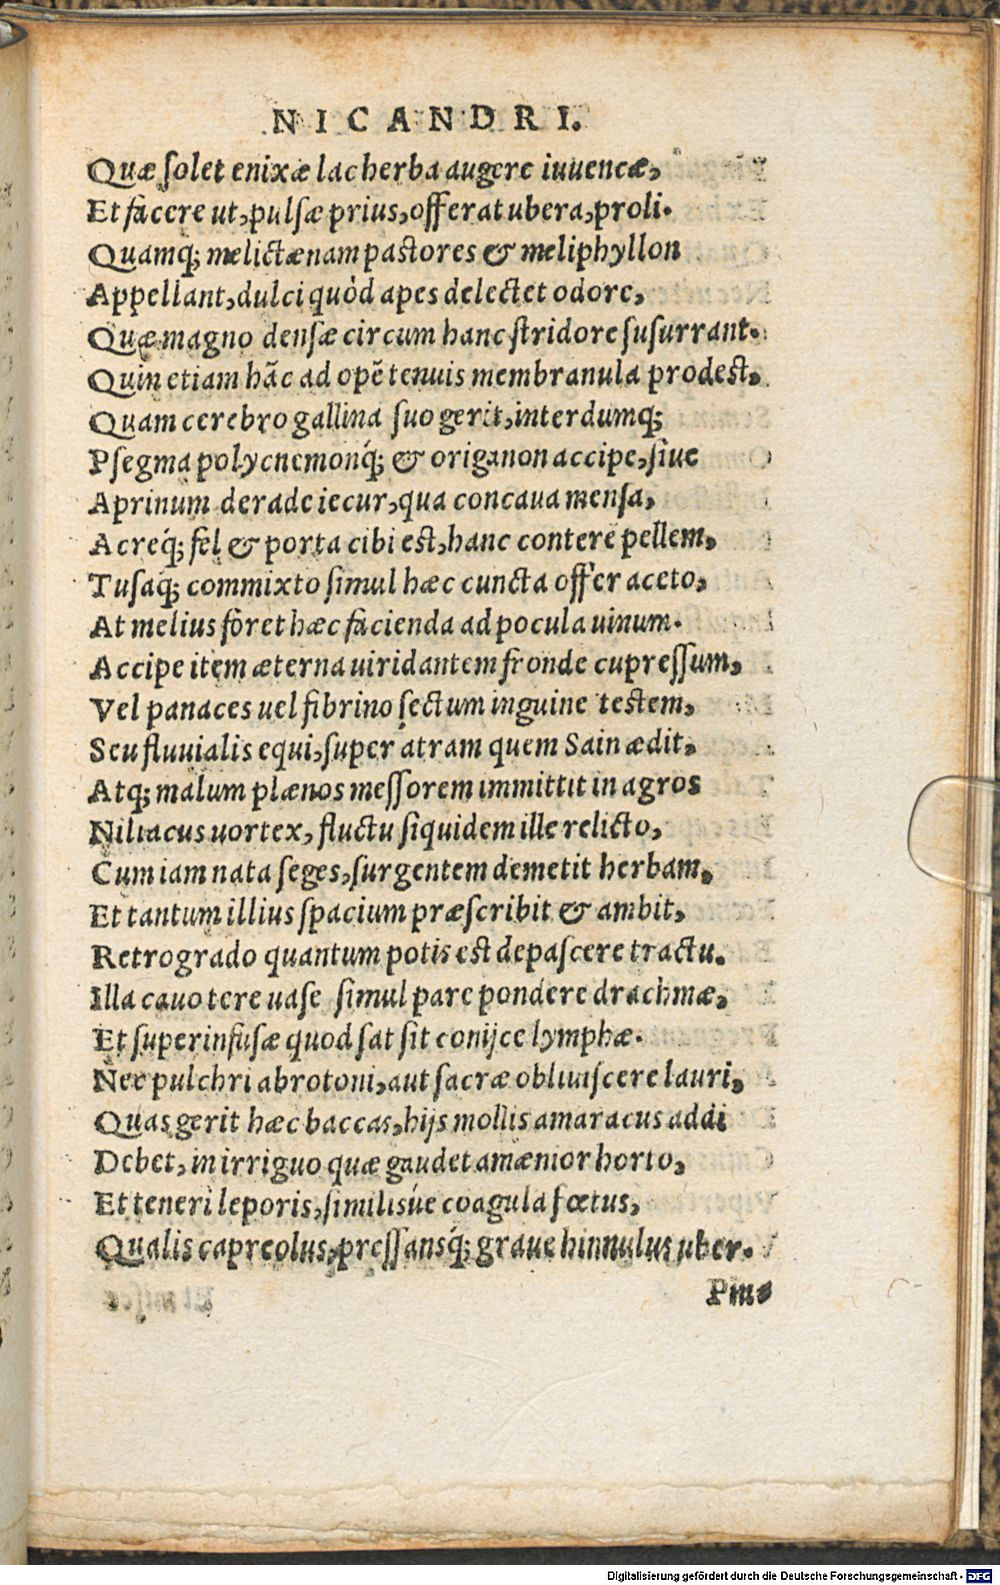 NICANDRI.
Quæ solet enixæ lac herba augere iuuencæ,
Et facere ut, pulsæ prius, offerat ubera, proli.
Quamq; melictænam pastores & meliphyllon
Appellant, dulci quòd apes delectet odore,
Quæ magno densæ circum hanc stridore susurrant.
Quin etiam hãc ad opẽ tenuis membranula prodest,
Quam cerebro gallina suo gerit, interdumq;
Psegma polycnemonq́; & origanon accipe, siue
Aprinum derade iecur, qua concaua mensa,
Acreq́; fel & porta cibi est, hanc contere pellem,
Tusaq́; commixto simul hæc cuncta offer aceto,
At melius foret hæc facienda ad pocula uinum.
Accipe item æterna uiridantem fronde cupressum,
Vel panaces uel fibrino sectum inguine testem,
Seu fluuialis equi, super atram quem Sain ædit,
Atq; malum plænos messorem immittit in agros
Niliacus uortex, fluctu siquidem ille relicto,
Cum iam nata seges, surgentem demetit herbam,
Et tantum illius spacium præscribit & ambit,
Retrogrado quantum potis est depascere tractu.
Illa cauo tere uase simul pare pondere drachmæ,
Et superinfusæ quod sat sit conijce lymphæ.
Nec pulchri abrotoni, aut sacræ obliuiscere lauri,
Quas gerit hæc baccas, hijs mollis amaracus addi
Debet, in irriguo quæ gaudet amænior horto,
Et teneri leporis, similisúe coagula fœtus,
Qualis capreolus, pressansq́; graue hinnulus uber.
Pin-
Digitalisierung gefördert durch die Deutsche Forschungsgemeinschaft - DFG